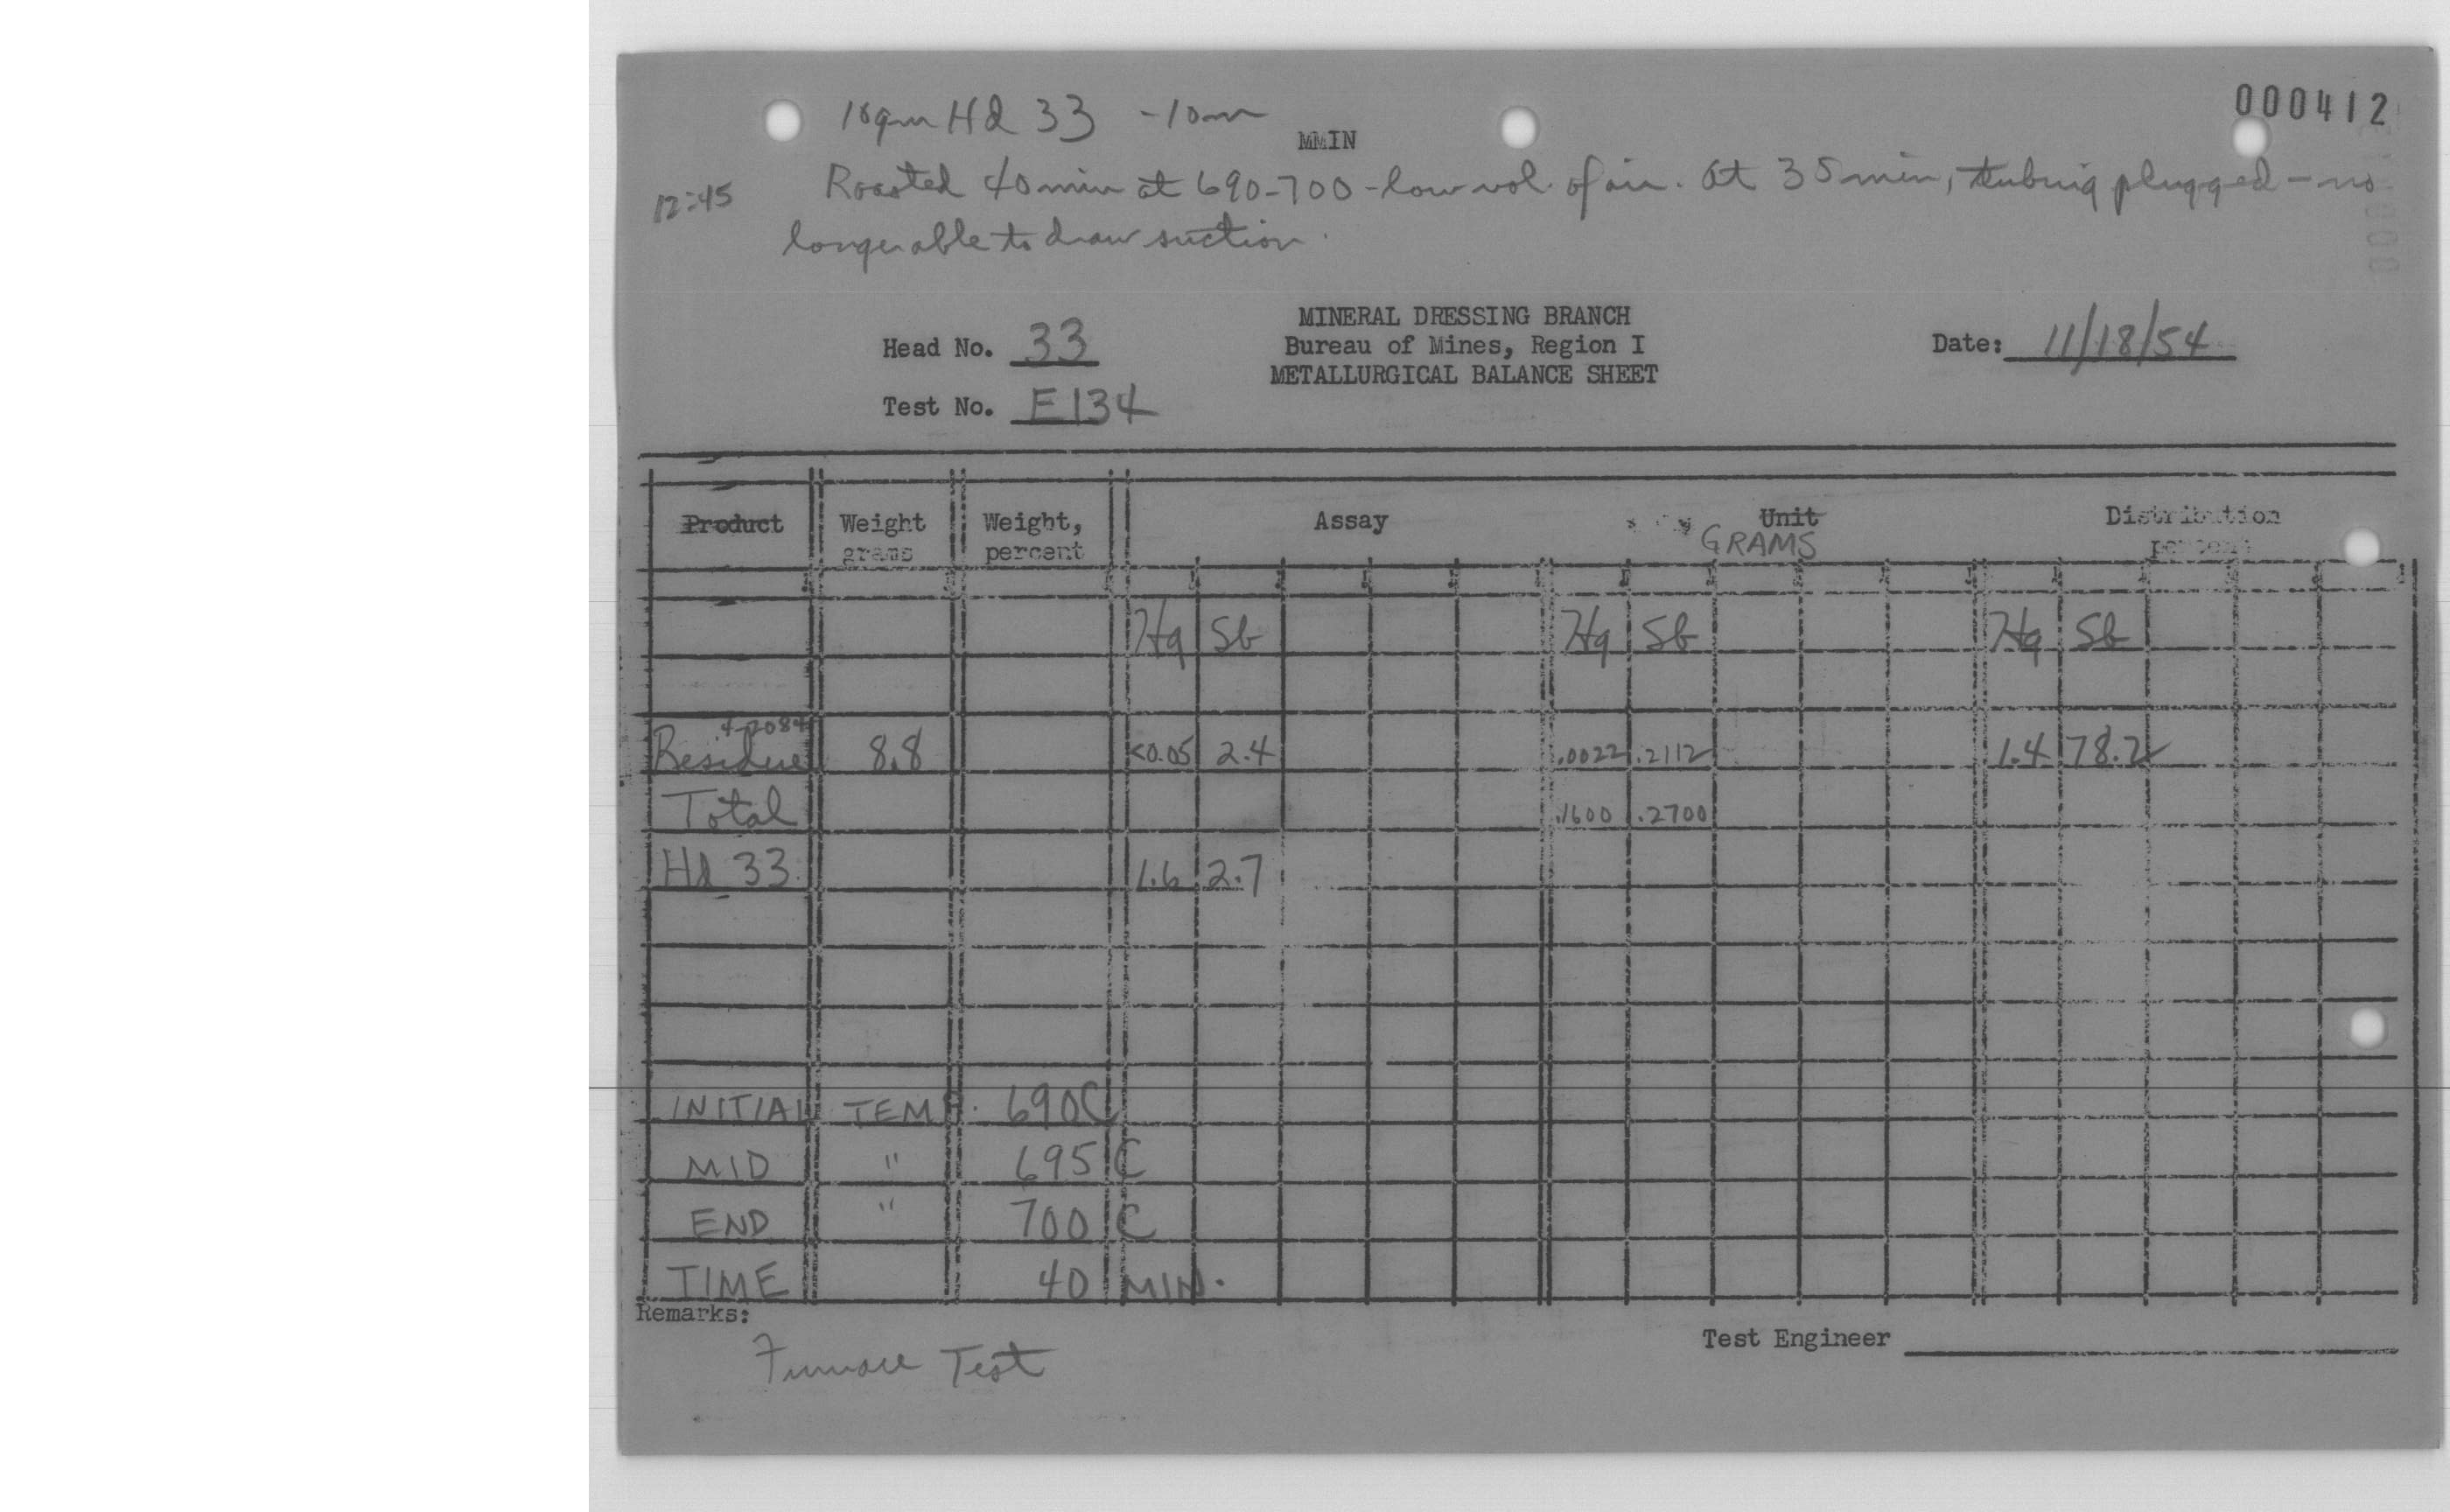 000412
10gm Hd 33 -10m
MMIN
12:45 Roasted 40 min at 690-700 - low vol. of air. At 35 min, tubing plugged - no
longer able to draw suction.
MINERAL DRESSING BRANCH
Head No. 33 Bureau of Mines, Region I Date: 11/18/54
METALLURGICAL BALANCE SHEET
Test No. E134
Product Weight grams Weight, percent Assay Unit GRAMS Distribution percent
Hg Sb Hg Sb Hg Sb
Residue 8.8 <0.05 2.4 .0022 .2112 1.4 78.2
Total .1600 .2700
Hd 33 1.6 2.7
INITIAL TEMP. 690C
MID " 695 C
END " 700 C
TIME 40 MIN.
Remarks:
Test Engineer
Furnace Test